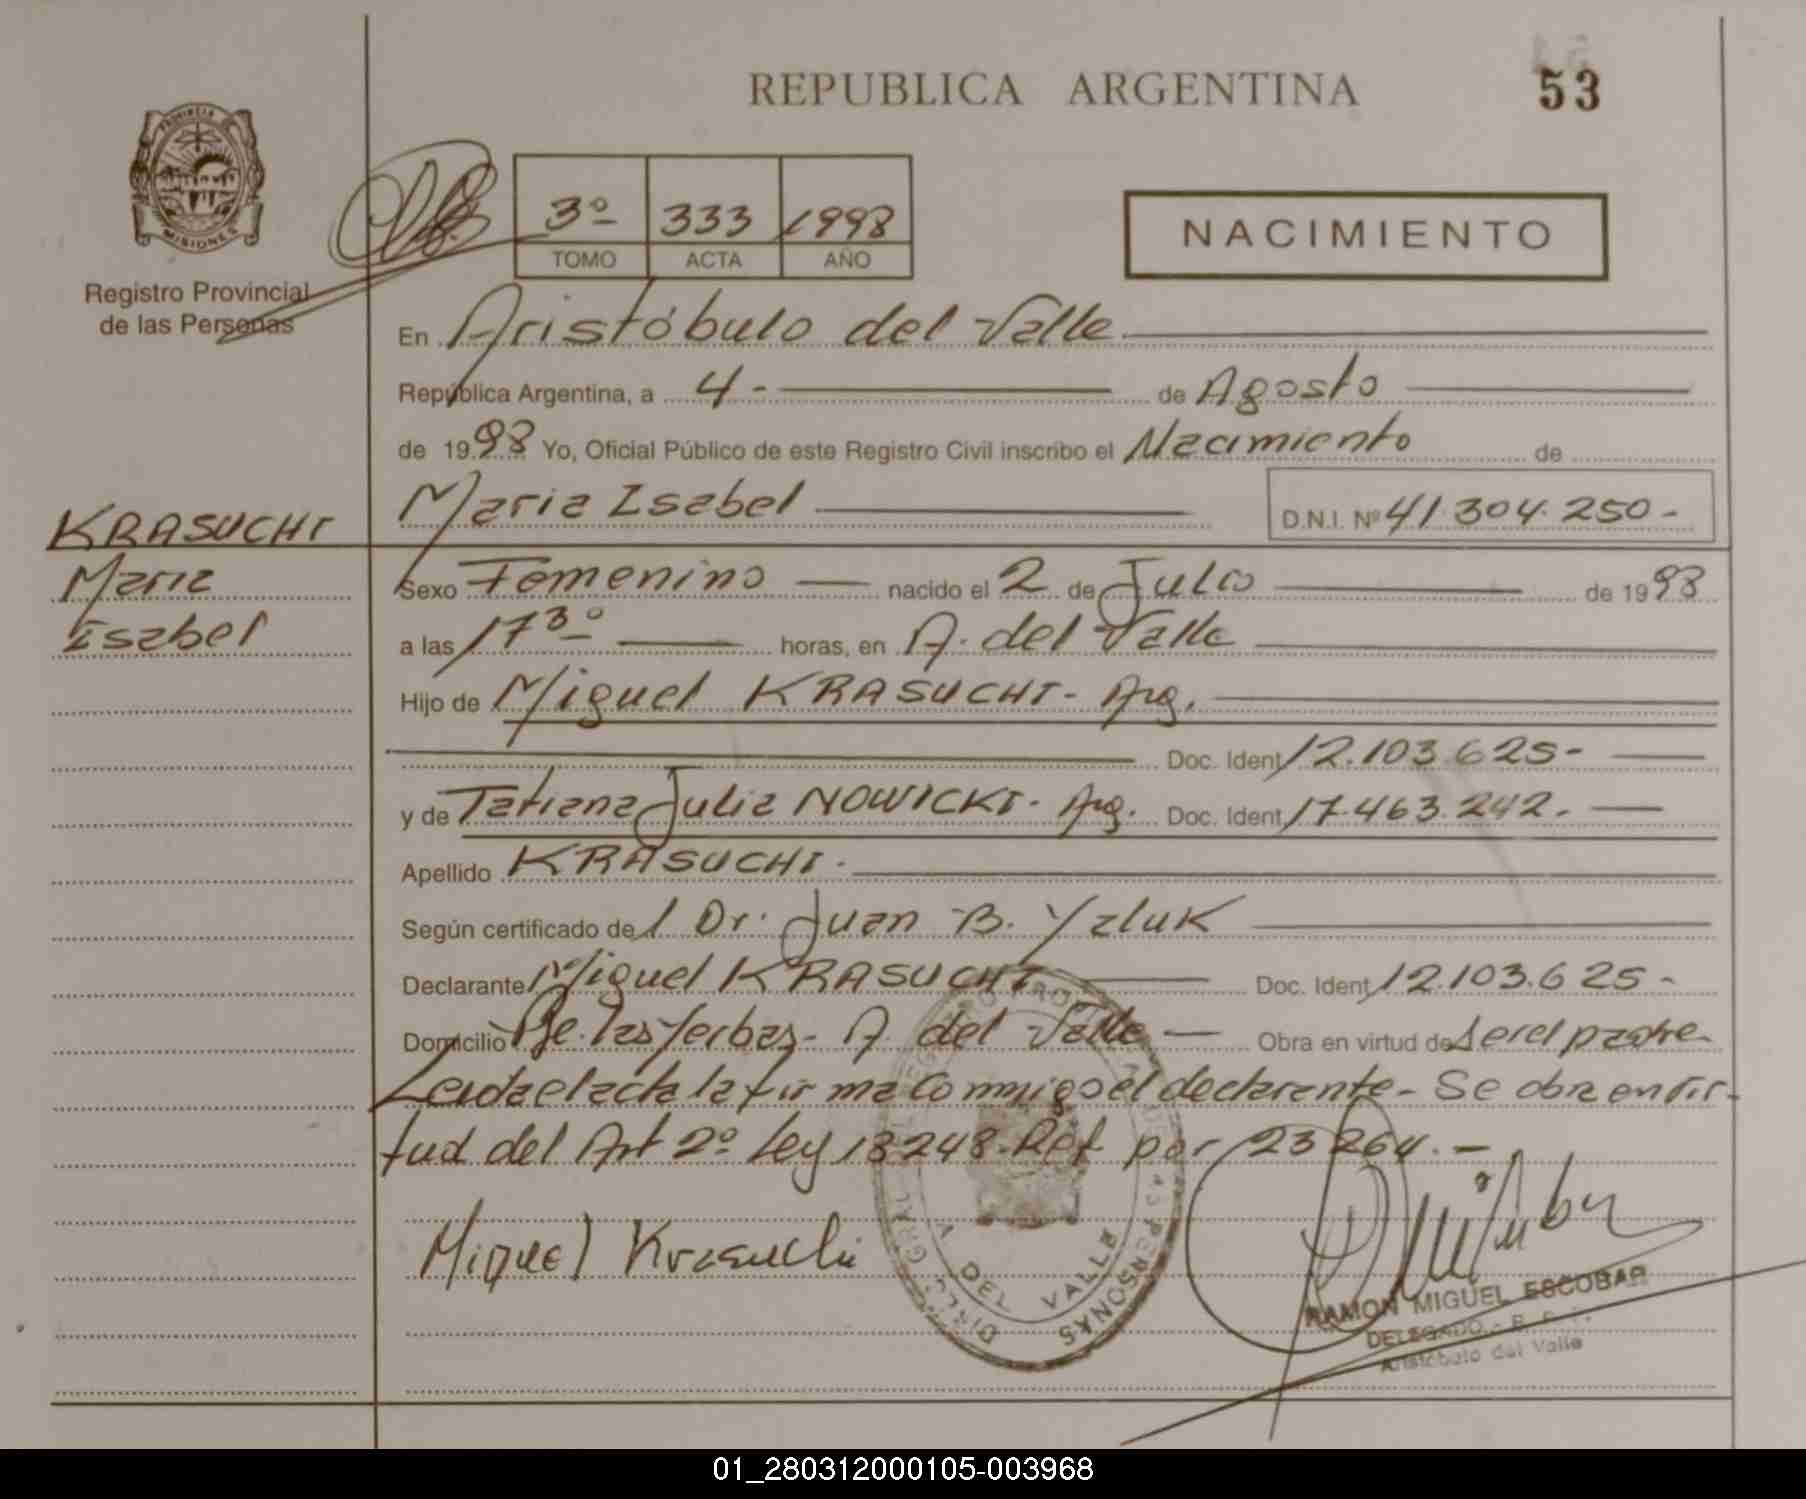 REPUBLICA ARGENTINA
53
PROVINCIA
MISIONES
Registro Provincial
de las Personas
3º 333 1998
TOMO ACTA AÑO
NACIMIENTO
En Aristóbulo del Valle
República Argentina, a 4- de Agosto
de 1998 Yo, Oficial Público de este Registro Civil inscribo el Nacimiento de
Maria Isabel D.N.I. Nº 41.304.250-
KRASUCHI
Maria
Isabel
Sexo Femenino nacido el 2 de Julio de 1998
a las 17 3º horas, en A. del Valle
Hijo de Miguel KRASUCHI- Arg.
Doc. Ident 12.103.625-
y de Tatiana Julia NOWICKI- Arg. Doc. Ident 17.463.242.-
Apellido KRASUCHI.
Según certificado del Dr. Juan B. Yaluk
Declarante Miguel KRASUCHI Doc. Ident 12.103.625-
Domicilio Bº. las Yerbas- A. del Valle Obra en virtud de ser el padre-
Leida el acta la firma conmigo el declarante- Se obra en vir-
tud del Art 2º Ley 18248. Ref por 23264.-
Miguel Krasuchi
A DEL VALLE
RAMON MIGUEL ESCOBAR
DELEGADO - R. P. P.
Aristóbulo del Valle
01_280312000105-003968